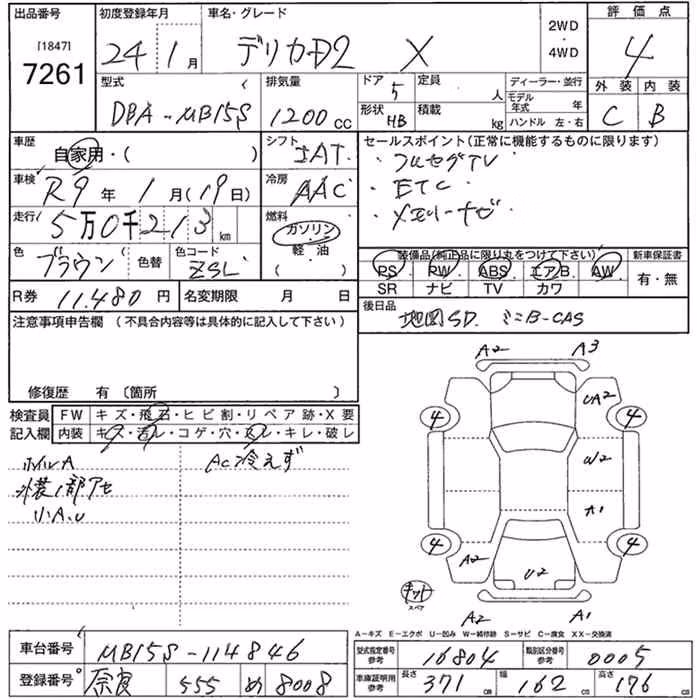 出品番号
[1847]
7261
初度登録年月
24年 1月
車名・グレード
デリカD2 X
2WD
4WD
評価点
4
外装 内装
C B
型式
DBA-MB15S
排気量
1200cc
ドア 5
形状 HB
定員 人
積載 kg
ディーラー・並行
モデル年式 年
ハンドル 左・右
車歴
自家用・( )
シフト
IAT
車検
R9年 1月(19日)
冷房
AAC
走行
5万0千213km
燃料
ガソリン
軽・油
( )
色
ブラウン
色替
色コード
ZSL
R券 11,480円
名変期限 月 日
セールスポイント(正常に機能するものに限ります)
・フルセグTV
・ETC
・メモリーナビ
装備品(純正品に限り丸をつけて下さい)
PS PW ABS エアB. AW
SR ナビ TV カワ
新車保証書
有・無
後日品
地図SD. ミニB-CAS
注意事項申告欄 (不具合内容等は具体的に記入して下さい)
修復歴 有 〔箇所 〕
検査員記入欄
FW キズ・飛石・ヒビ割・リペア跡・X要
内装 キズ・汚レ・コゲ・穴・スレ・キレ・破レ
ホイルA
外装1部アセ
小A.U
AC冷えず
A2 A3
UA2
4 4
W2
A1
4 4
A2
U2
キット
スペア
A2 A1
A-キズ E-エクボ U-凹み W-補修跡 S-サビ C-腐食 XX-交換済
車台番号 MB15S-114846
登録番号 奈良 555 め 8008
型式指定番号 参考 16804
類別区分番号 参考 0005
車庫証明用 参考 長さ 371cm 幅 162cm 高さ 176cm